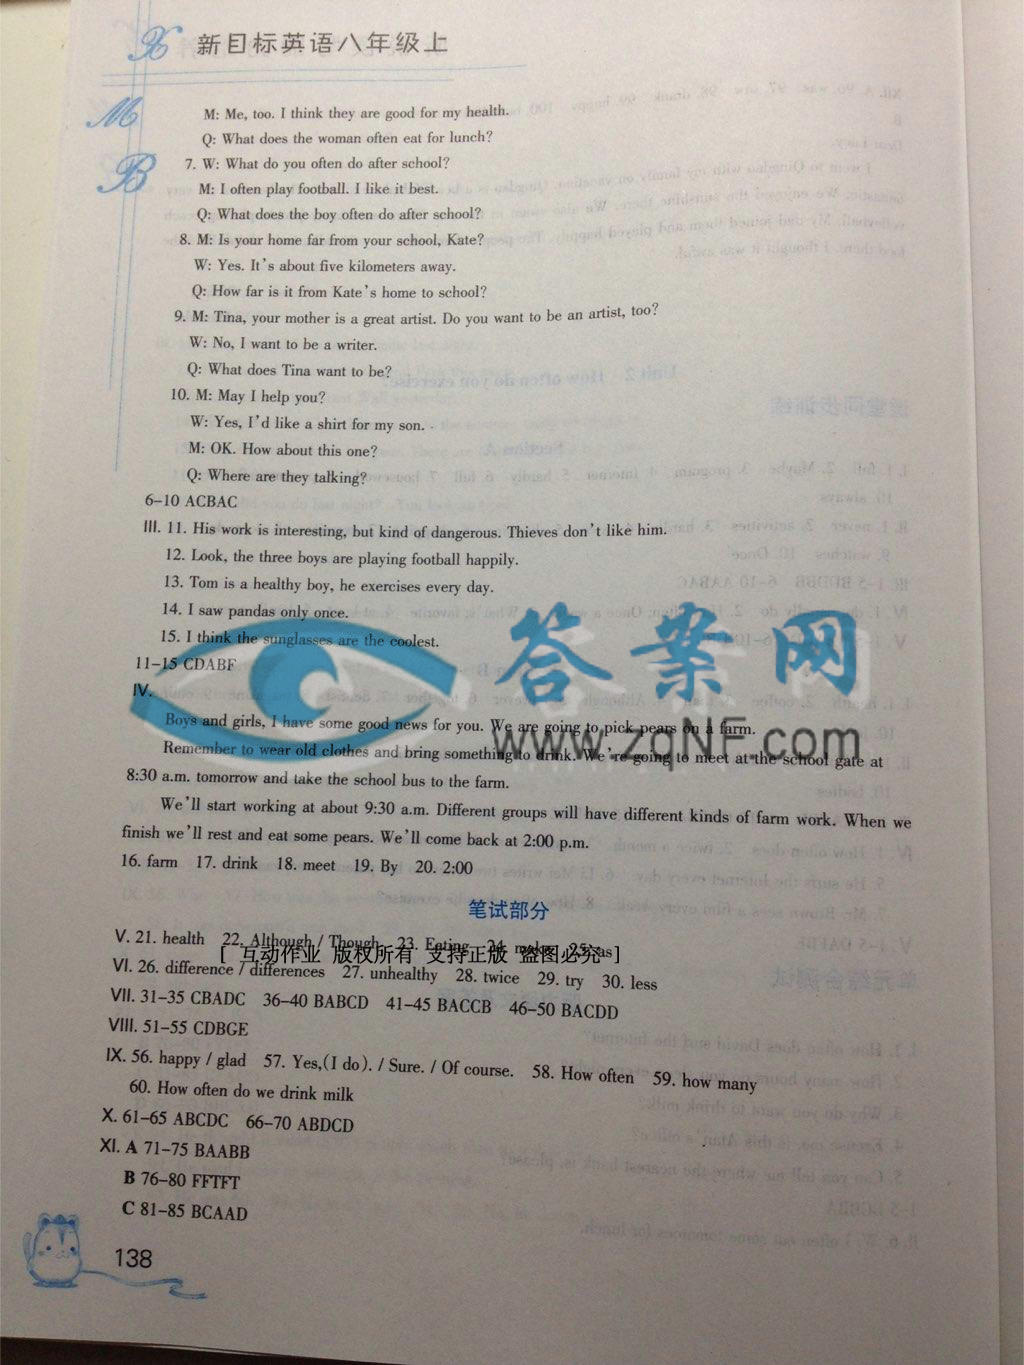 新目标英语八年级上
X
M
B
M: Me, too. I think they are good for my health.
Q: What does the woman often eat for lunch?
7. W: What do you often do after school?
M: I often play football. I like it best.
Q: What does the boy often do after school?
8. M: Is your home far from your school, Kate?
W: Yes. It's about five kilometers away.
Q: How far is it from Kate's home to school?
9. M: Tina, your mother is a great artist. Do you want to be an artist, too?
W: No, I want to be a writer.
Q: What does Tina want to be?
10. M: May I help you?
W: Yes, I'd like a shirt for my son.
M: OK. How about this one?
Q: Where are they talking?
6-10 ACBAC
III. 11. His work is interesting, but kind of dangerous. Thieves don't like him.
12. Look, the three boys are playing football happily.
13. Tom is a healthy boy, he exercises every day.
14. I saw pandas only once.
15. I think the sunglasses are the coolest.
11-15 CDABF
IV.
Boys and girls, I have some good news for you. We are going to pick pears on a farm.
Remember to wear old clothes and bring something to drink. We're going to meet at the school gate at
8:30 a.m. tomorrow and take the school bus to the farm.
We'll start working at about 9:30 a.m. Different groups will have different kinds of farm work. When we
finish we'll rest and eat some pears. We'll come back at 2:00 p.m.
16. farm 17. drink 18. meet 19. By 20. 2:00
答案网
www.zqNF.com
笔试部分
V. 21. health 22. Although / Though 23. Eating 24. makes 25. as
[ 互动作业 版权所有 支持正版 盗图必究 ]
VI. 26. difference / differences 27. unhealthy 28. twice 29. try 30. less
VII. 31-35 CBADC 36-40 BABCD 41-45 BACCB 46-50 BACDD
VIII. 51-55 CDBGE
IX. 56. happy / glad 57. Yes,(I do). / Sure. / Of course. 58. How often 59. how many
60. How often do we drink milk
X. 61-65 ABCDC 66-70 ABDCD
XI. A 71-75 BAABB
B 76-80 FFTFT
C 81-85 BCAAD
138